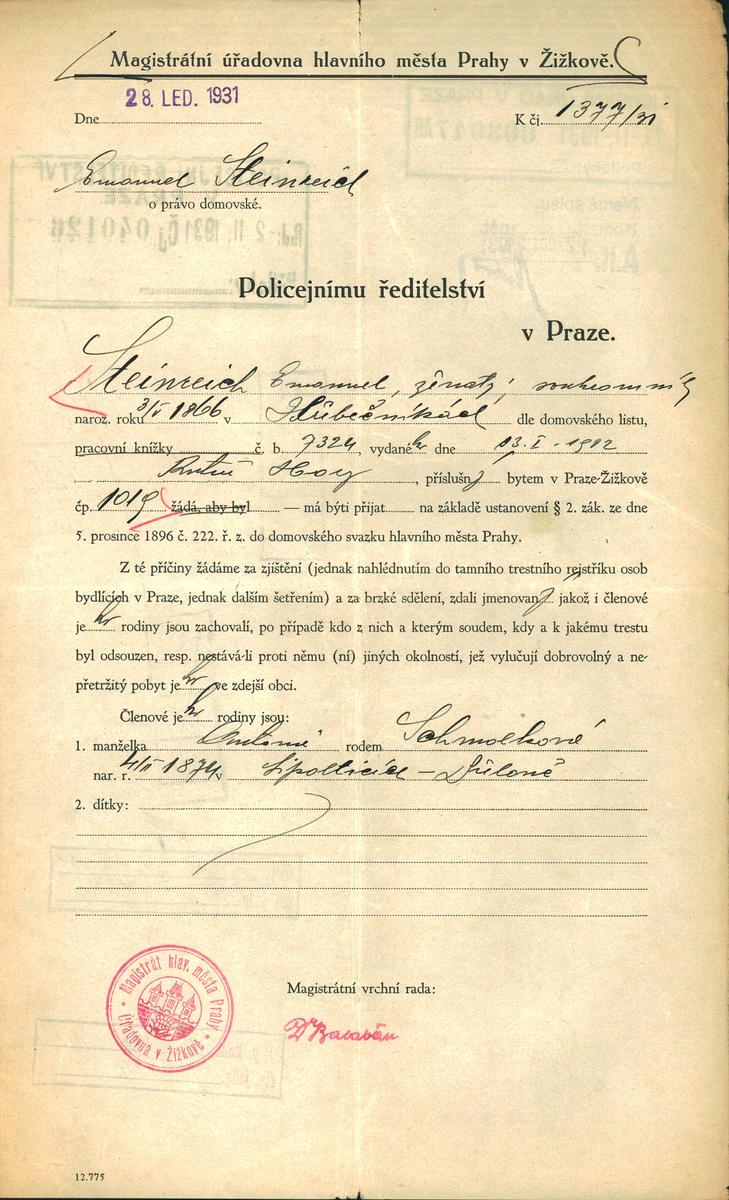 Magistrátní úřadovna hlavního města Prahy v Žižkově.
28. LED. 1931
Dne
K čj. 1377/31
Emanuel Steinreich
o právo domovské.
Policejnímu ředitelství
v Praze.
Steinreich Emanuel, ženatý, soukromník
naroz. roku 3/V 1866 v dle domovského listu,
pracovní knížky č. b. 7324, vydané dne 13. I. 1912
Kutné Hory, příslušný bytem v Praze-Žižkově
čp. 1019 žádá, aby byl — má býti přijat na základě ustanovení § 2. zák. ze dne
5. prosince 1896 č. 222. ř. z. do domovského svazku hlavního města Prahy.
Z té příčiny žádáme za zjištění (jednak nahlédnutím do tamního trestního rejstříku osob
bydlících v Praze, jednak dalším šetřením) a za brzké sdělení, zdali jmenovaný jakož i členové
jeho rodiny jsou zachovalí, po případě kdo z nich a kterým soudem, kdy a k jakému trestu
byl odsouzen, resp. nestává-li proti němu (ní) jiných okolností, jež vylučují dobrovolný a ne-
přetržitý pobyt jeho ve zdejší obci.
Členové jeho rodiny jsou:
1. manželka Antonie rodem Schmolková
nar. r. 4/II 1874 v Lipolticích –
2. dítky:
Magistrát hlav. města Prahy.
Úřadovna v Žižkově
Magistrátní vrchní rada:
12.775